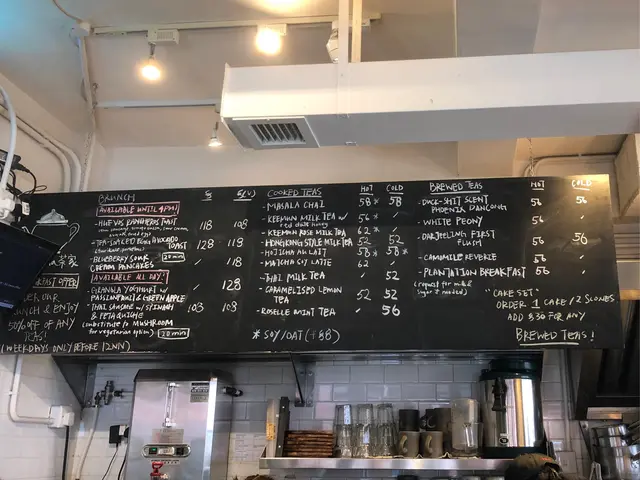 BRUNCH $ $(V)
AVAILABLE UNTIL 4PM!
HUEVOS RANCHEROS TOAST 118 108
TEA-SAUCED AVOCADO
TOAST 128 118
BLUEBERRY SOUR
CREAM PANCAKES 20 min ✓ 128
AVAILABLE ALL DAY:
GRANOLA YOGHURT W/
PASSIONFRUIT & GREEN APPLE ✓ 108
THAI OMELETTE W/ SPINACH 108 ✓
(substitute to MUSHROOM
for vegetarian option) 20 min
OFFER
OUR
& ENJOY
50% OFF OF ANY
TEAS!
(WEEKDAYS ONLY BEFORE 12NN)
COOKED TEAS HOT COLD
- MASALA CHAI 58* 58
- KEEMUN MILK TEA W/ 56* ✓
red date honey
- KEEMUN ROSE MILK TEA 62* ✓
- HONGKONG STYLE MILK TEA 52 52
- HOJICHA AU LAIT 58* ✓
- MATCHA LATTE 62 ✓
- THAI MILK TEA ✓ 52
- CARAMELISED LEMON
TEA 52 52
- ROSELLE MINT TEA ✓ 56
* SOY/OAT (+$8)
BREWED TEAS HOT COLD
- DUCK-SHIT SCENT
PHOENIX DANCONG 56 56
- WHITE PEONY 56 ✓
- DARJEELING FIRST
FLUSH 56 56
- CAMOMILE REVERIE 56 ✓
- PLANTATION BREAKFAST 56 ✓
(request for milk &
sugar if needed)
"CAKE SET"
ORDER 1 CAKE / 2 SCONES
ADD $30 FOR ANY
BREWED TEAS!